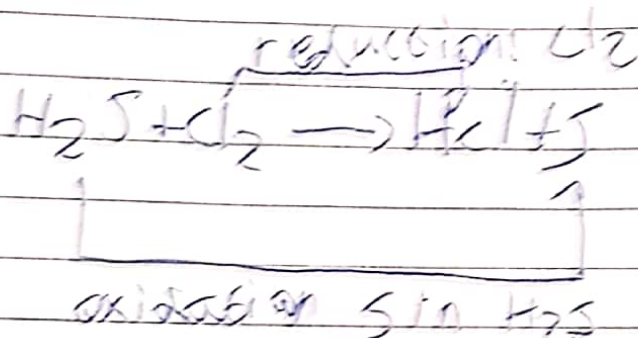 reduction Cl2
H2S+Cl2 → HCl+S
oxidation S in H2S